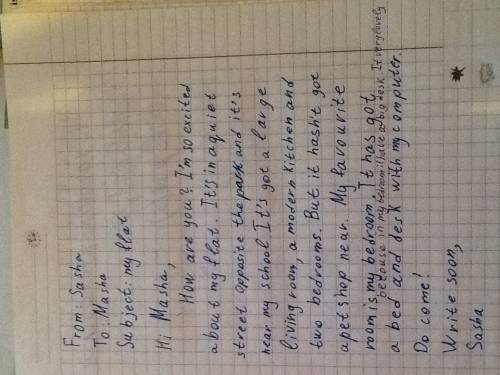 From: Sasha
To: Masha
Subject: my flat
Hi Masha,
How are you? I'm so excited
about my flat. It's in a quiet
street opposite the park and it's
near my school It's got a large
living room, a modern kitchen and
two bedrooms. But it hasn't got
a pet shop near. My favourite
room is my bedroom. It has got
because in my bedroom i have a big desk. It very lovely
a bed and desk with my computer.
Do come!
Write soon,
Sasha